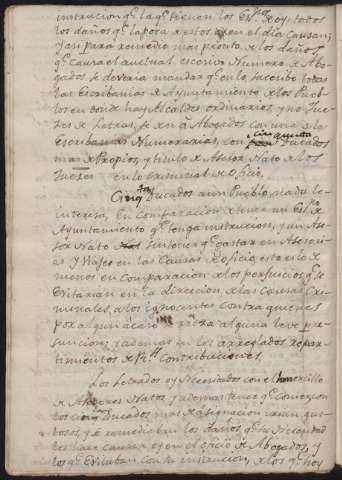 instrucion qe la qe tienen los Esnos de oy, todos
los daños qe la poca de estos en el dia causan;
y asi para remedio mas pronto de los daños
qe causa el actual excesivo Numero de Abo-
gados se deveria mandar qe en lo sucesibo todas
las Escribanias de Ayuntamiento de los Pueb-
los en donde hay Alcaldes ordinarios, y no Jue-
zes de Letras, se den á Abogados con una de las
Escribanias Numerarias, con cinquenta Ducados
mas de Propios, y titulo de Asesor Nato de los
Juezes en lo criminal de Oficio.
Cinqta Ducados a un Pueblo, nada le
interesa, en comparacion de tener un Esno de
Ayuntamiento qe tenga instrucion, y un Ase-
sor Nato sin tener qe gastar en Asesorias
y Viages en las Causas de oficio, esto es lo
menos en comparacion de los perjuicios qe se
evitarian en la direcion de las Causas Cri-
minales, a los ignocentes contra quienes
por algun acaso resulta alguna leve pre-
suncion; y ademas en los arreglados repar-
timientos de Rs Contribuciones.
Los Letrados ya recividos con el honorcillo
de Asesores Natos y ademas tener qe comer con
los cinqta Ducados mas de asignacion irian gus-
tosos, y se remediaban los daños, qe su necesidad
les hace causar oy en el oficio de Abogados, y
los qe evitaban con su instrucion, de los qe hoy